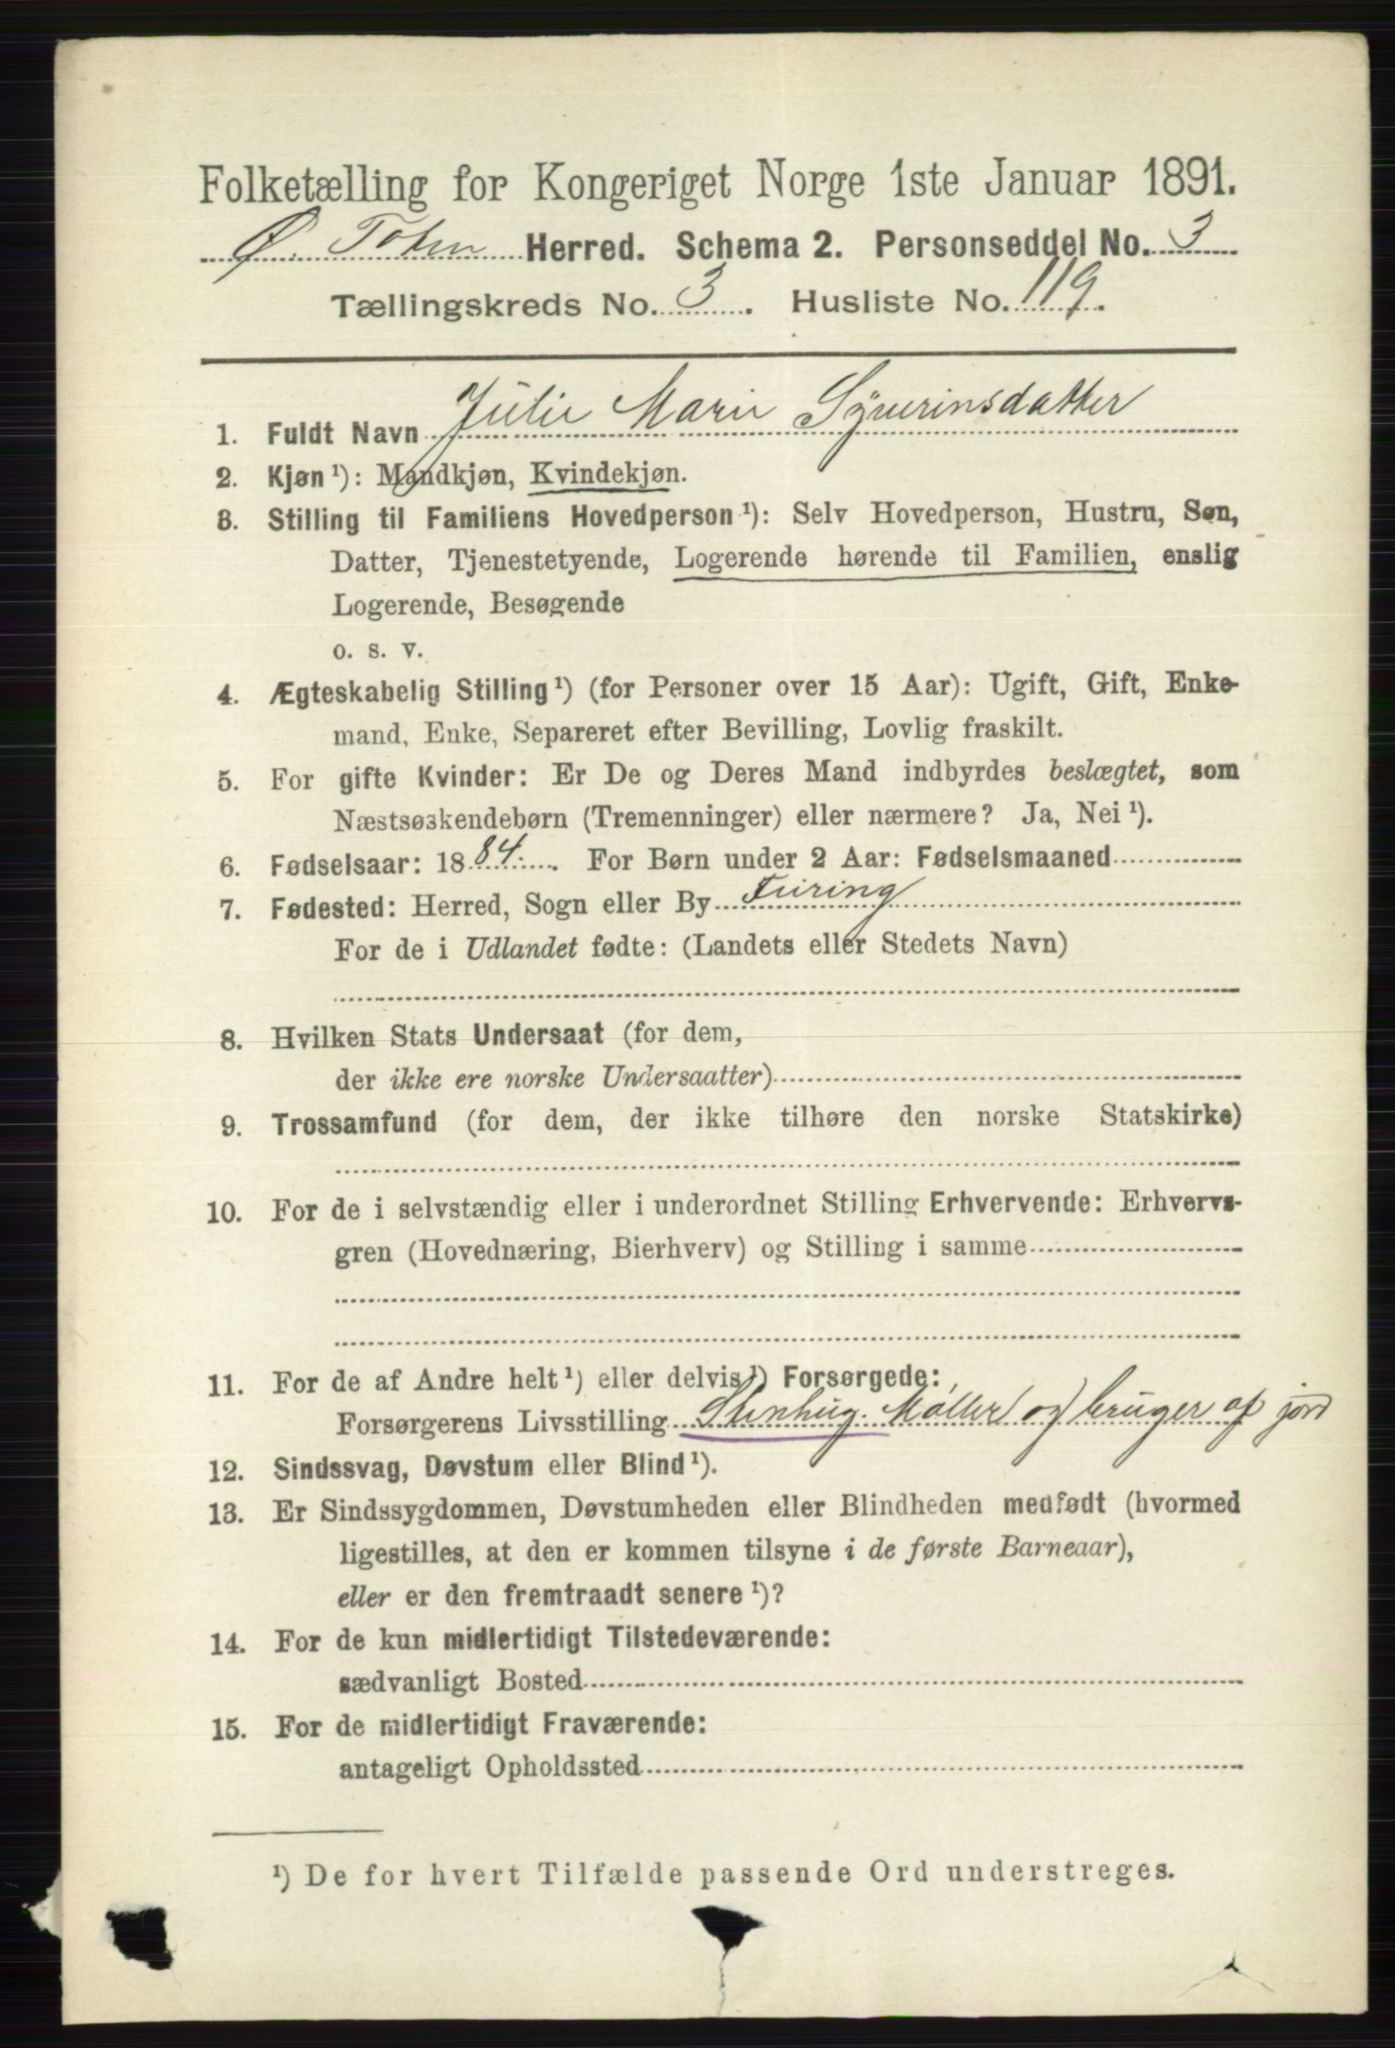 Folketælling for Kongeriget Norge 1ste Januar 1891.
Ø. Toten Herred. Schema 2. Personseddel No. 3
Tællingskreds No. 3. Husliste No. 119.
1. Fuldt Navn Julie Marie Syverinsdatter
2. Kjøn ¹): Mandkjøn, Kvindekjøn.
3. Stilling til Familiens Hovedperson ¹): Selv Hovedperson, Hustru, Søn,
Datter, Tjenestetyende, Logerende hørende til Familien, enslig
Logerende, Besøgende
o. s. v.
4. Ægteskabelig Stilling ¹) (for Personer over 15 Aar): Ugift, Gift, Enke-
mand, Enke, Separeret efter Bevilling, Lovlig fraskilt.
5. For gifte Kvinder: Er De og Deres Mand indbyrdes beslægtet, som
Næstsøskendebørn (Tremenninger) eller nærmere? Ja, Nei ¹).
6. Fødselsaar: 1884. For Børn under 2 Aar: Fødselsmaaned
7. Fødested: Herred, Sogn eller By
For de i Udlandet fødte: (Landets eller Stedets Navn)
8. Hvilken Stats Undersaat (for dem,
der ikke ere norske Undersaatter)
9. Trossamfund (for dem, der ikke tilhøre den norske Statskirke)
10. For de i selvstændig eller i underordnet Stilling Erhvervende: Erhvervs-
gren (Hovednæring, Bierhverv) og Stilling i samme
11. For de af Andre helt ¹) eller delvis ¹) Forsørgede:
Forsørgerens Livsstilling Stenhug. Møller og bruger af jord
12. Sindssvag, Døvstum eller Blind ¹).
13. Er Sindssygdommen, Døvstumheden eller Blindheden medfødt (hvormed
ligestilles, at den er kommen tilsyne i de første Barneaar),
eller er den fremtraadt senere ¹)?
14. For de kun midlertidigt Tilstedeværende:
sædvanligt Bosted
15. For de midlertidigt Fraværende:
antageligt Opholdssted
¹) De for hvert Tilfælde passende Ord understreges.